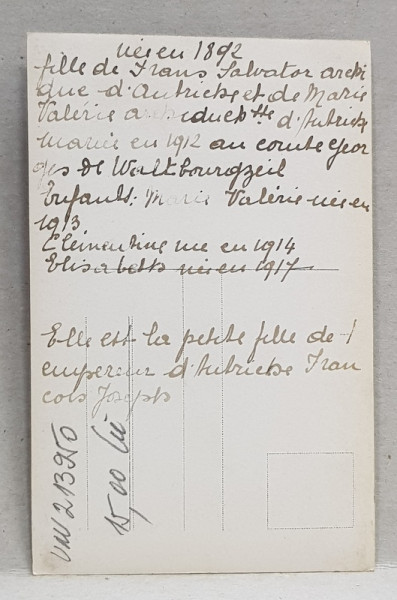 née en 1892
fille de Frans Salvator archi
duc d'Autriche et de Marie
Valérie archiduchsse d'Autriche
mariée en 1912 au comte Geor
ges de Waltbourgzeil
Enfants: Marie Valérie née en
1913
Clémentine née en 1914
Elisabeth née en 1917
Elle est la petite fille de l
empereur d'Autriche Fran
cois Joseph
15,00 lei